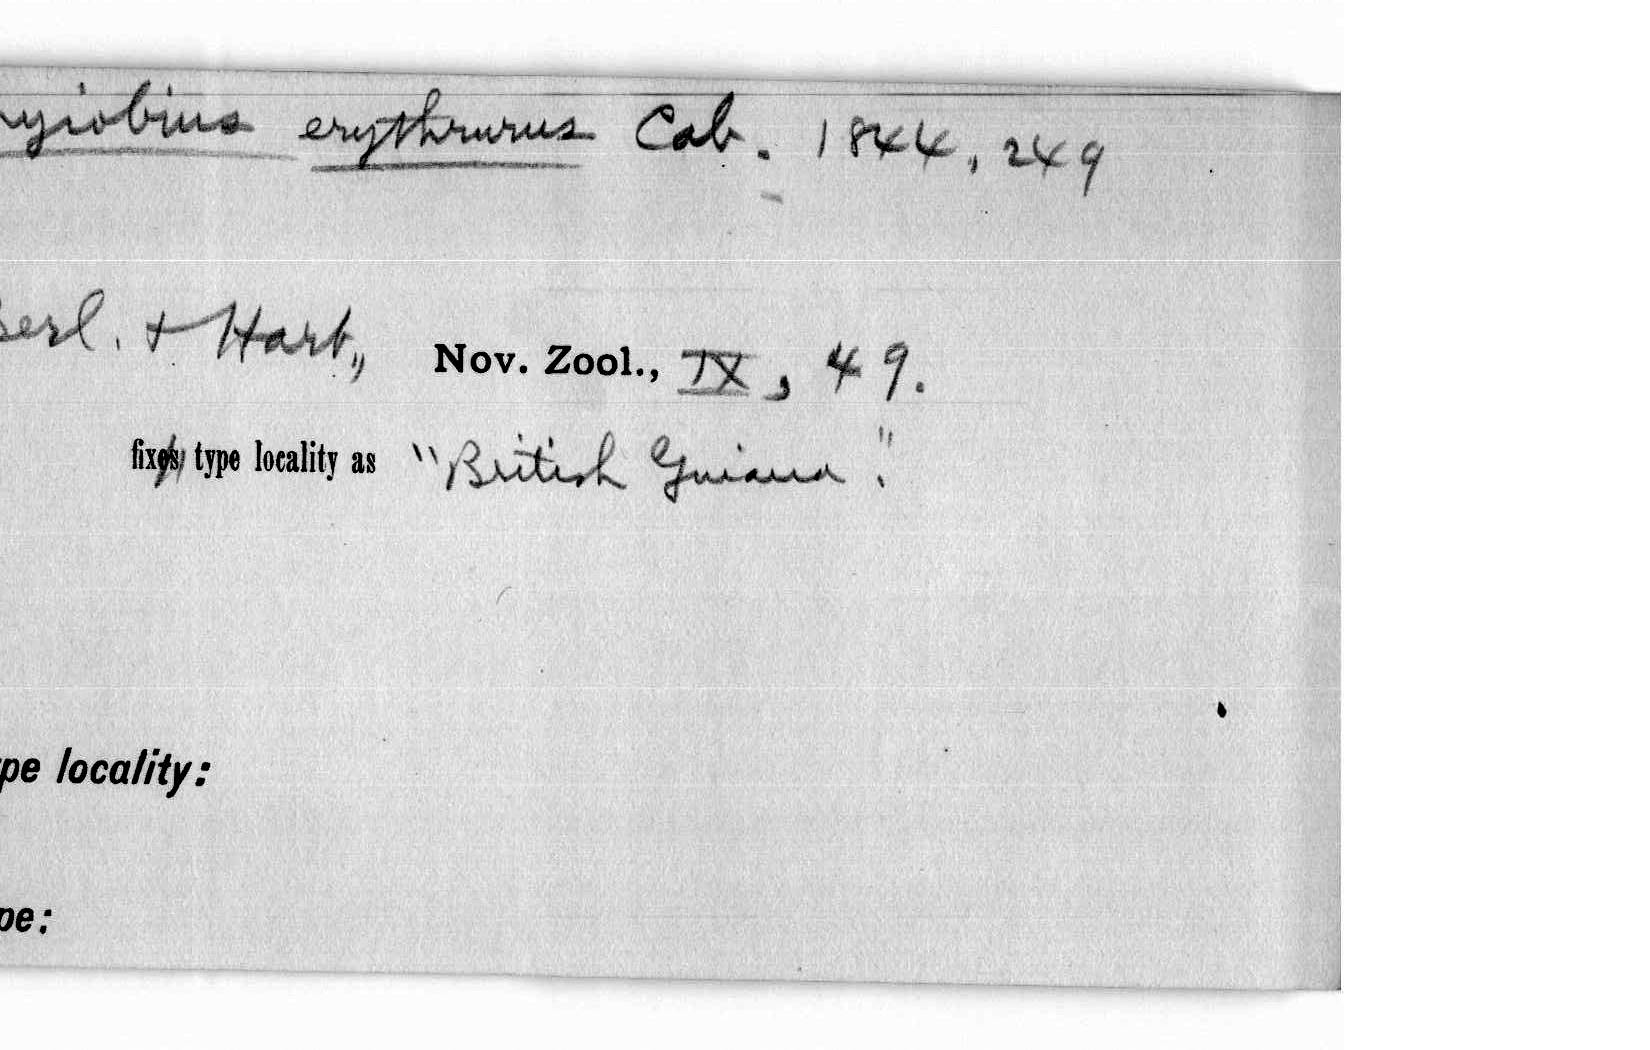 yiobius erythrurus Cab. 1844, 249
Berl. + Hart., Nov. Zool., IX, 49.
fixes type locality as "British Guiana".
pe locality:
pe: